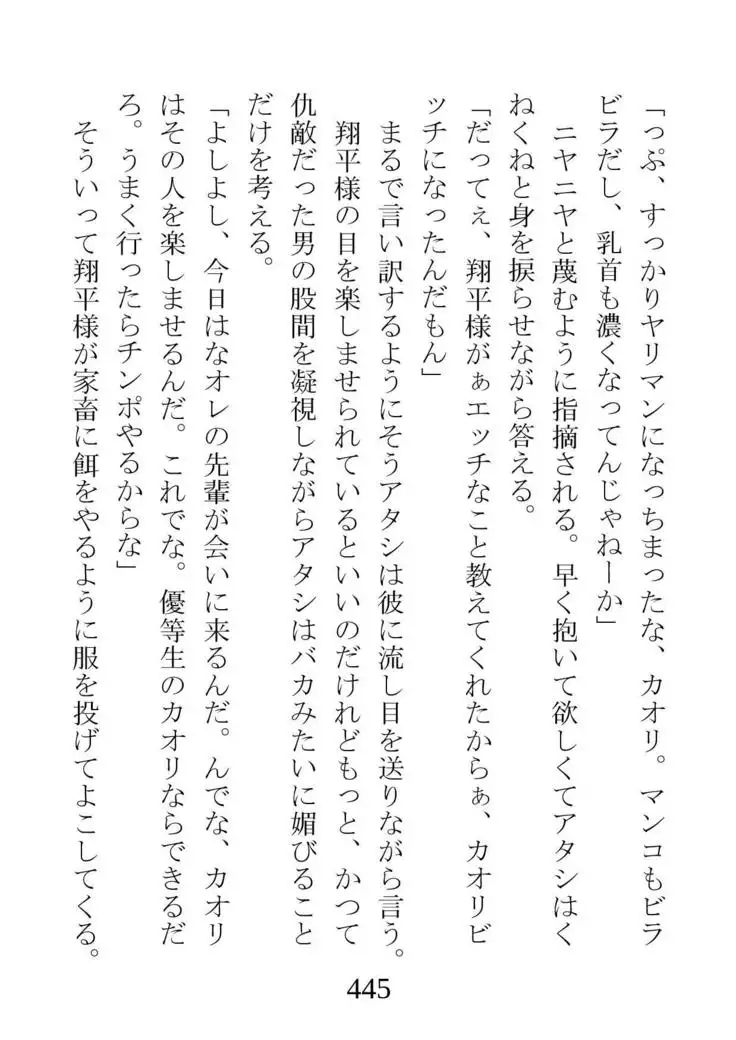 「っぷ、すっかりヤリマンになっちまったな、カオリ。マンコもビラ
ビラだし、乳首も濃くなってんじゃねーか」
ニヤニヤと蔑むように指摘される。早く抱いて欲しくてアタシはく
ねくねと身を捩らせながら答える。
「だってぇ、翔平様がぁエッチなこと教えてくれたからぁ、カオリビ
ッチになったんだもん」
まるで言い訳するようにそうアタシは彼に流し目を送りながら言う。
翔平様の目を楽しませられているといいのだけれどもっと、かつて
仇敵だった男の股間を凝視しながらアタシはバカみたいに媚びること
だけを考える。
「よしよし、今日はなオレの先輩が会いに来るんだ。んでな、カオリ
はその人を楽しませるんだ。これでな。優等生のカオリならできるだ
ろ。うまく行ったらチンポやるからな」
そういって翔平様が家畜に餌をやるように服を投げてよこしてくる。
445